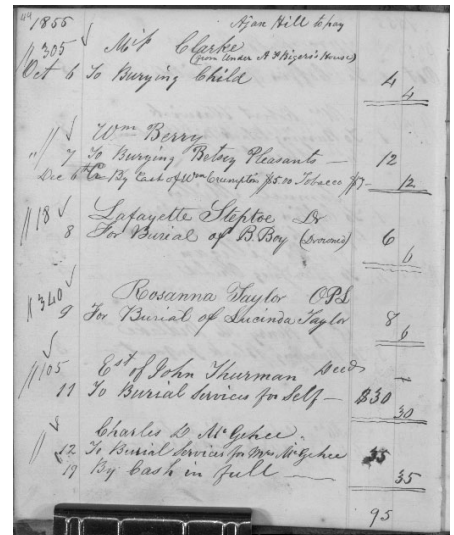 44 1855 Ajax Hill to pay
305 Miss Clarke
(from Under A. H. Rogers's House)
Oct 6 To Burying Child 4
4
Wm Berry
" 7 To Burying Betsey Pleasants — 12
Dec 6th Cr By Cash of Wm Crumpton $5.00 Tobacco $7 — 12
118 Lafayette Steptoe Dr
8 For Burial of B. Boy (Drowned) 6
6
340 Rosanna Taylor
9 For Burial of Lucinda Taylor 8
6
105 Est of John Therman Decd
11 To Burial Services for Self — $30
30
Charles D. McGehee
12 To Burial Services for Mrs McGehee 35
19 By Cash in full — 35
95